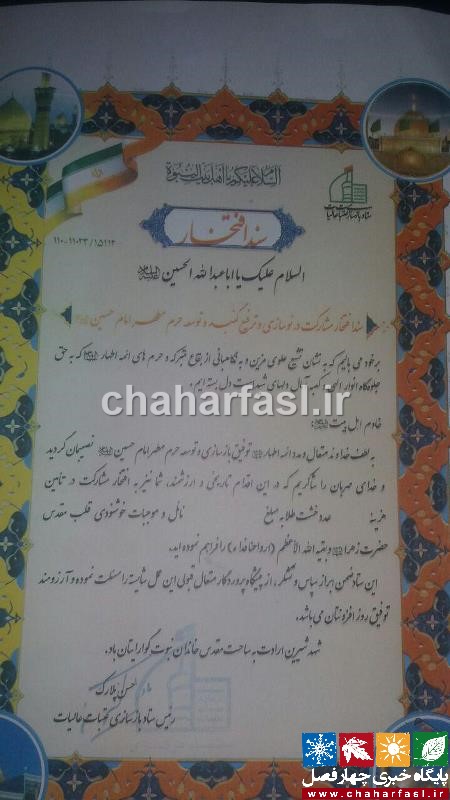 السلام علیکم یا اهل بیت النبوة
ستاد بازسازی عتبات عالیات
سند افتخار
۱۱۰-۱۱۰۲۳/۱۵۱۱۲
السلام علیک یا ابا عبدالله الحسین علیه السلام
سند افتخار مشارکت در نوسازی و ترفیع گنبد و توسعه حرم مطهر امام حسین
بر خود می بالیم که به نشان تشیع علوی مزین و به نگاهبانی از بقاع متبرکه و حرم های ائمه اطهار که به حق
جلوه‌گاه انوار الهی، کعبه آمال دلهای شیدا است دل بسته ایم.
chaharfasl.ir
خادم اهل بیت
به لطف خداوند متعال و مدد ائمه اطهار توفیق بازسازی و توسعه حرم مطهر امام حسین نصیبمان گردید
و خدای مهربان را شاکریم که در این اقدام تاریخی و ارزشمند، شما نیز به افتخار مشارکت در تأمین
هزینه عدد خشت طلا به مبلغ نائل و موجبات خوشنودی قلب مقدس
حضرت زهرا و بقیه الله الاعظم (ارواحنا فداه) را فراهم نموده اید.
این ستاد ضمن ابراز سپاس و تشکر، از پیشگاه پروردگار متعال قبولی این عمل شایسته را مسئلت نموده و آرزومند
توفیق روز افزونتان می باشد.
شهد شیرین ارادت به ساحت مقدس خاندان نبوت گوارایتان باد.
حسن پلارک
رئیس ستاد بازسازی عتبات عالیات
پایگاه خبری چهارفصل
www.chaharfasl.ir